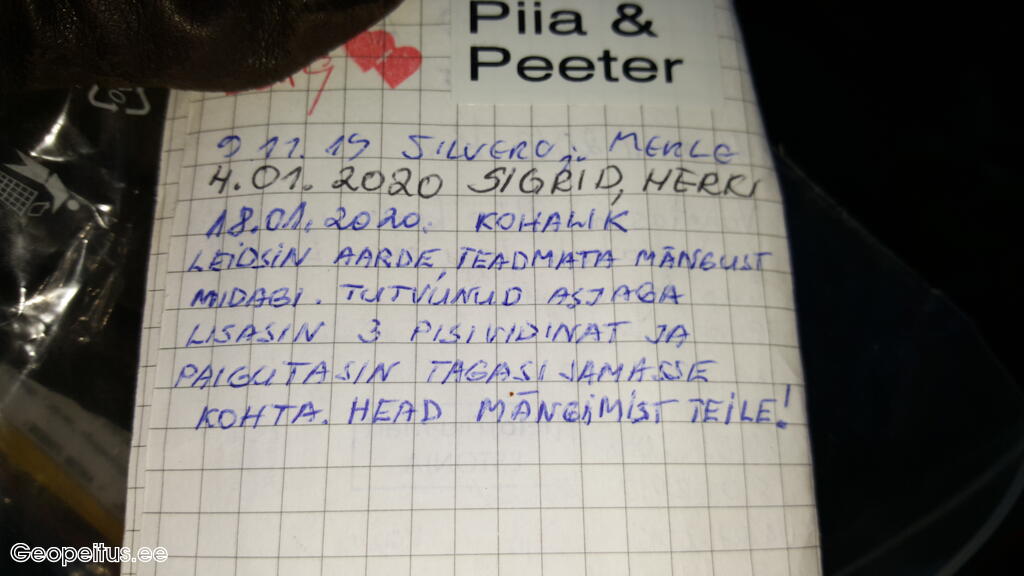 Piia &
Peeter
9 11.19 SILVER ja MERLE
4.01.2020 SIGRID, HERKI
18.01.2020. KOHALIK
LEIDSIN AARDE, TEADMATA MÄNGUST
MIDAGI. TUTVUNUD ASJAGA
LISASIN 3 PISIVIDINAT JA
PAIGUTASIN TAGASI SAMASSE
KOHTA. HEAD MÄNGIMIST TEILE!
Geopeitus.ee